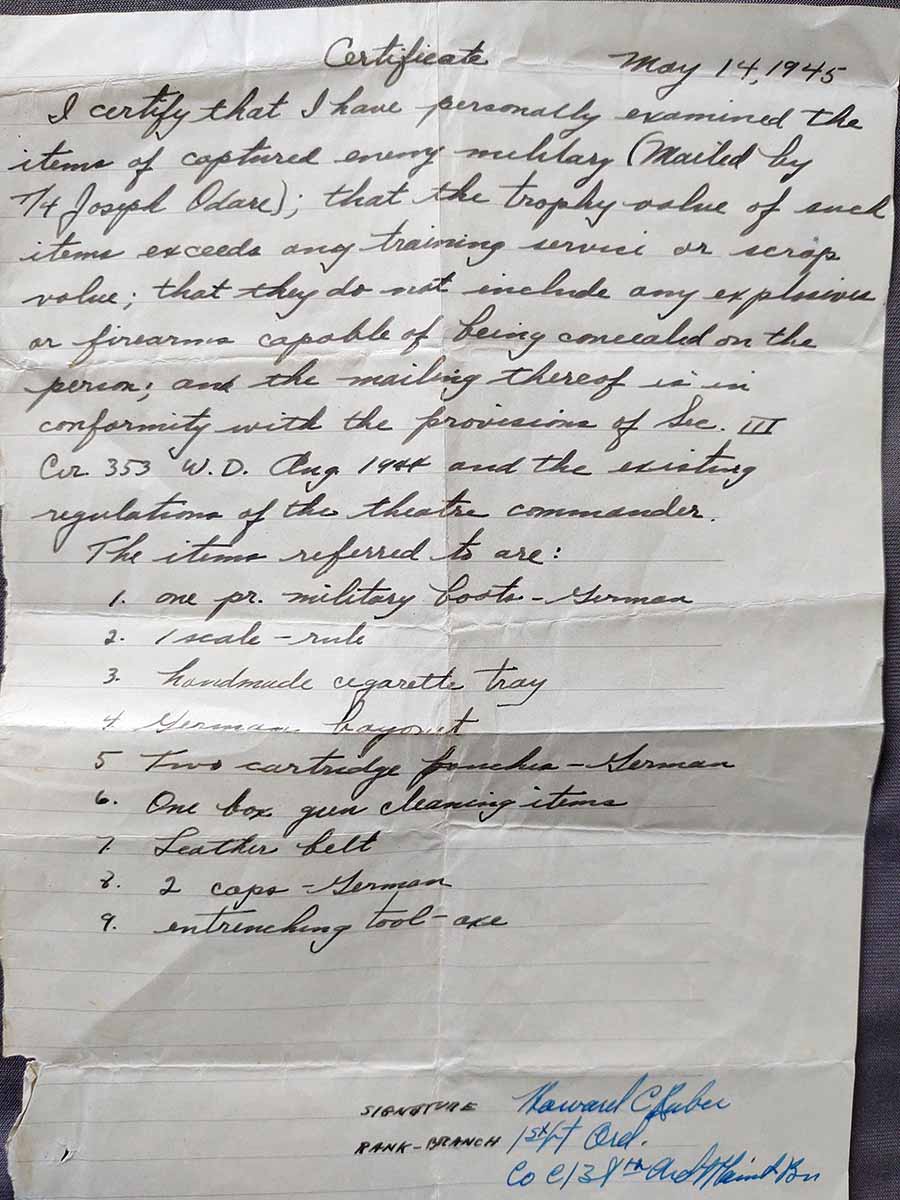 Certificate May 14, 1945
I certify that I have personally examined the
items of captured enemy military (Mailed by
T/4 Joseph Odare); that the trophy value of such
items exceeds any training service or scrap
value; that they do not include any explosives
or firearms capable of being concealed on the
person; and the mailing thereof is in
conformity with the provisions of Sec. III
Cir 353 W.D. Aug. 1944 and the existing
regulations of the theatre commander.
The items referred to are:
1. one pr. military boots - German
2. 1 scale - rule
3. handmade cigarette tray
4 German bayonet
5 Two cartridge pouches - German
6. One box gun cleaning items
7. Leather belt
8. 2 caps - German
9. entrenching tool - axe
SIGNATURE Howard C
RANK-BRANCH 1st Lt Ord.
Co C 138th Ord Maint Bn